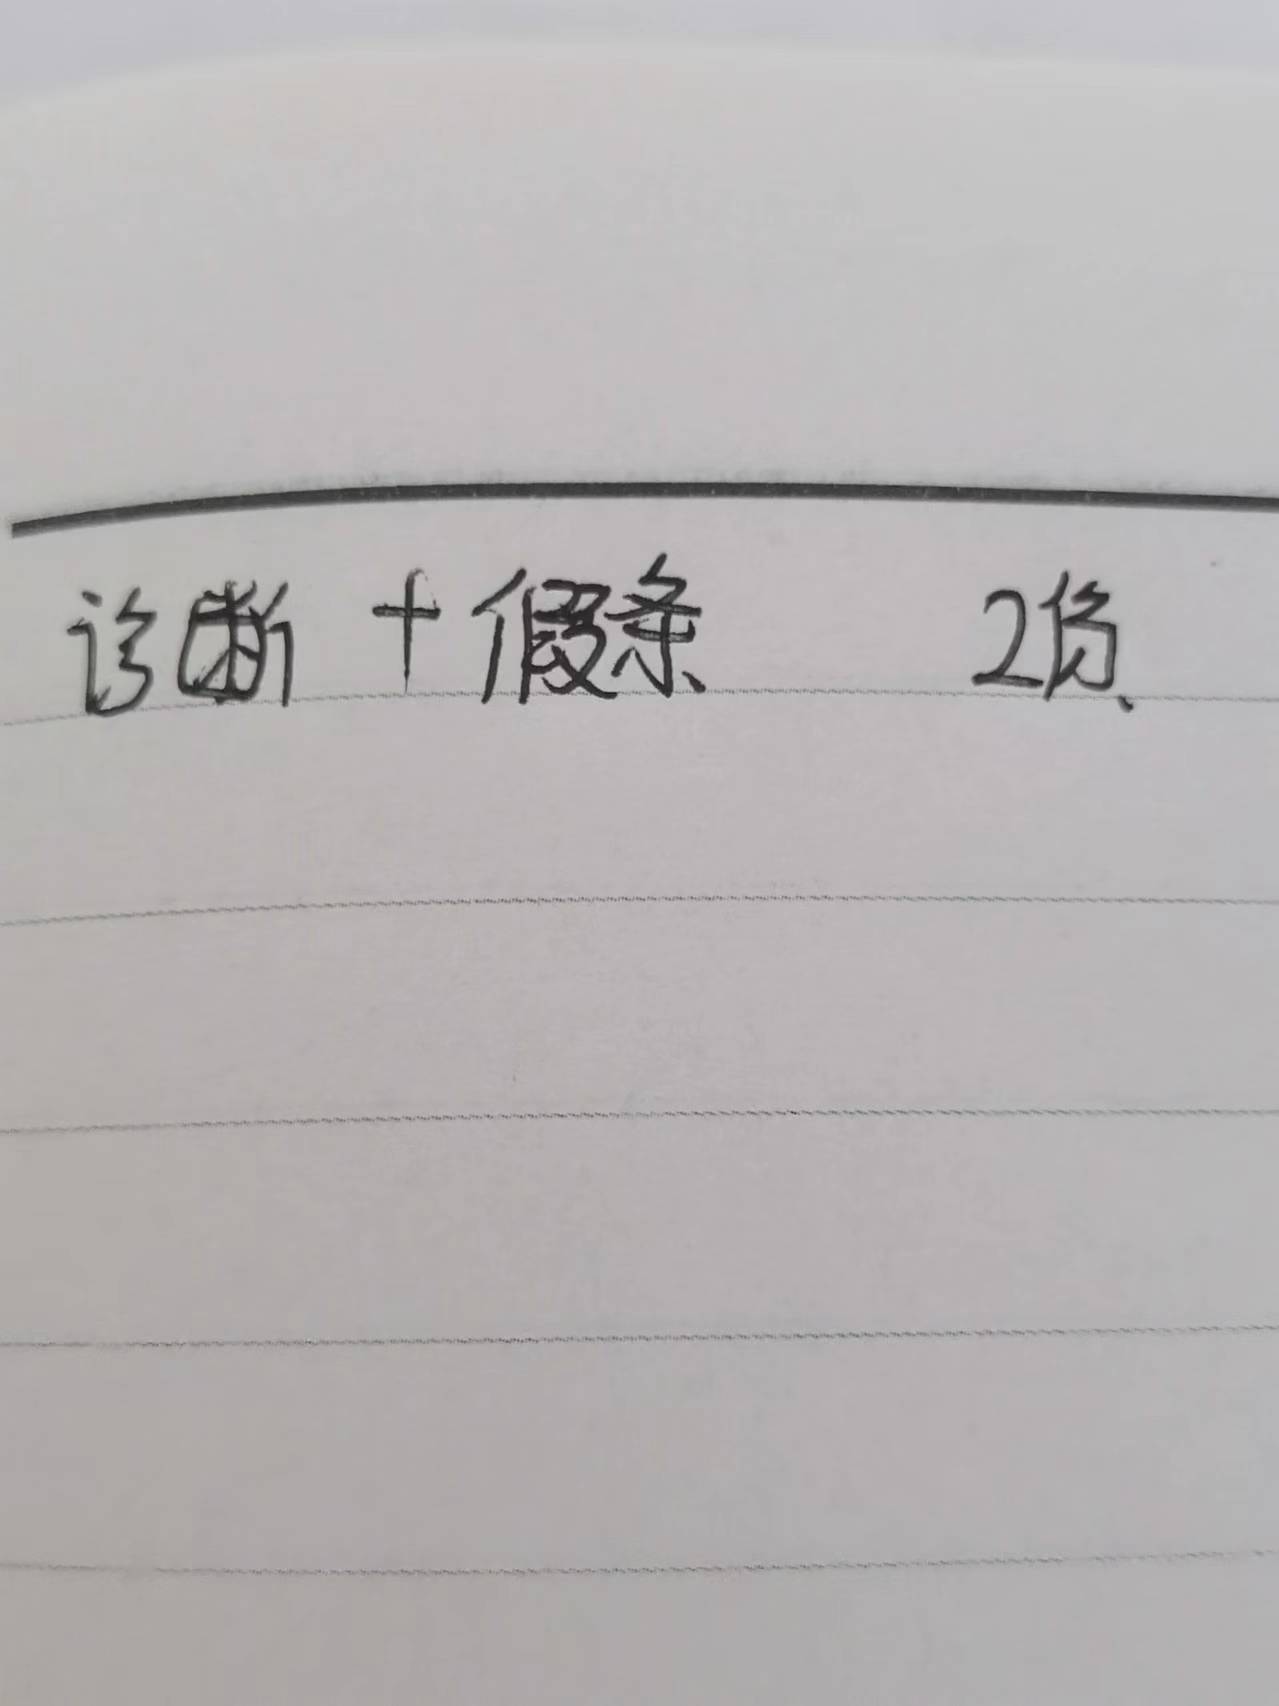 诊断+假条 2份